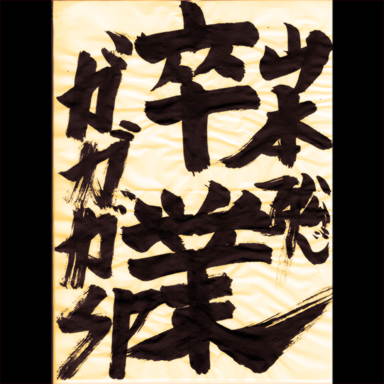 山本聡
卒業
ガガガSP